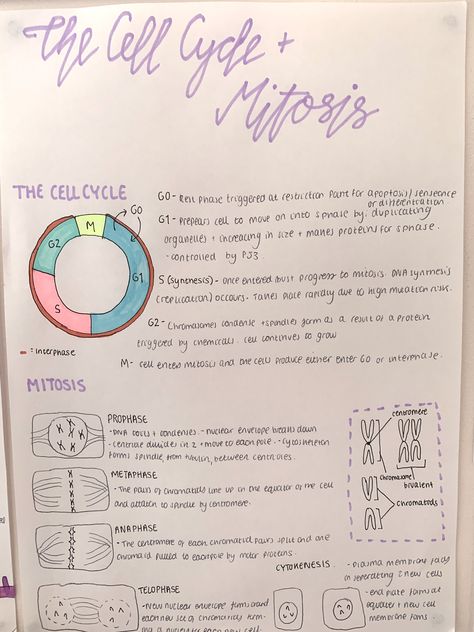 The Cell Cycle +
Mitosis
THE CELL CYCLE
G0
M
G2
G1
S
= interphase
G0 - Rest phase triggered at restriction point for apoptosis/senescence
or differentiation.
G1 - Prepears cell to move on into sphase by: duplicating
organelles + increasing in size + makes proteins for sphase.
- controlled by P53.
S (synthesis) - once entered must progress to mitosis. DNA synthesis
(replication) occurs. Takes place rapidly due to high mutation risk.
G2 - Chromosomes condense + spindles form as a result of a protein
triggered by chemicals. cell continues to grow
M - cell enters mitosis and the cells produce either enter G0 or interphase.
MITOSIS
PROPHASE
- DNA coils + condenses. - nuclear envelope breaks down
- centriole divides in 2 + move to each pole. - cytoskeleton
forms spindle, from tubulin, between centrioles.
METAPHASE
- The pairs of chromatids line up in the equator of the cell
and attach to spindle by centromere.
ANAPHASE
- The centromere of each chromatid pairs split and one
chromatid pulled to each pole by motor proteins.
TELOPHASE
- New nuclear envelope forms around
each new set of chromatids
centromere
chromosome
bivalent
chromatids
CYTOKENESIS
- plasma membrane folds
in seperating 2 new cells
- end plate forms at
equator + new cell
membrane forms